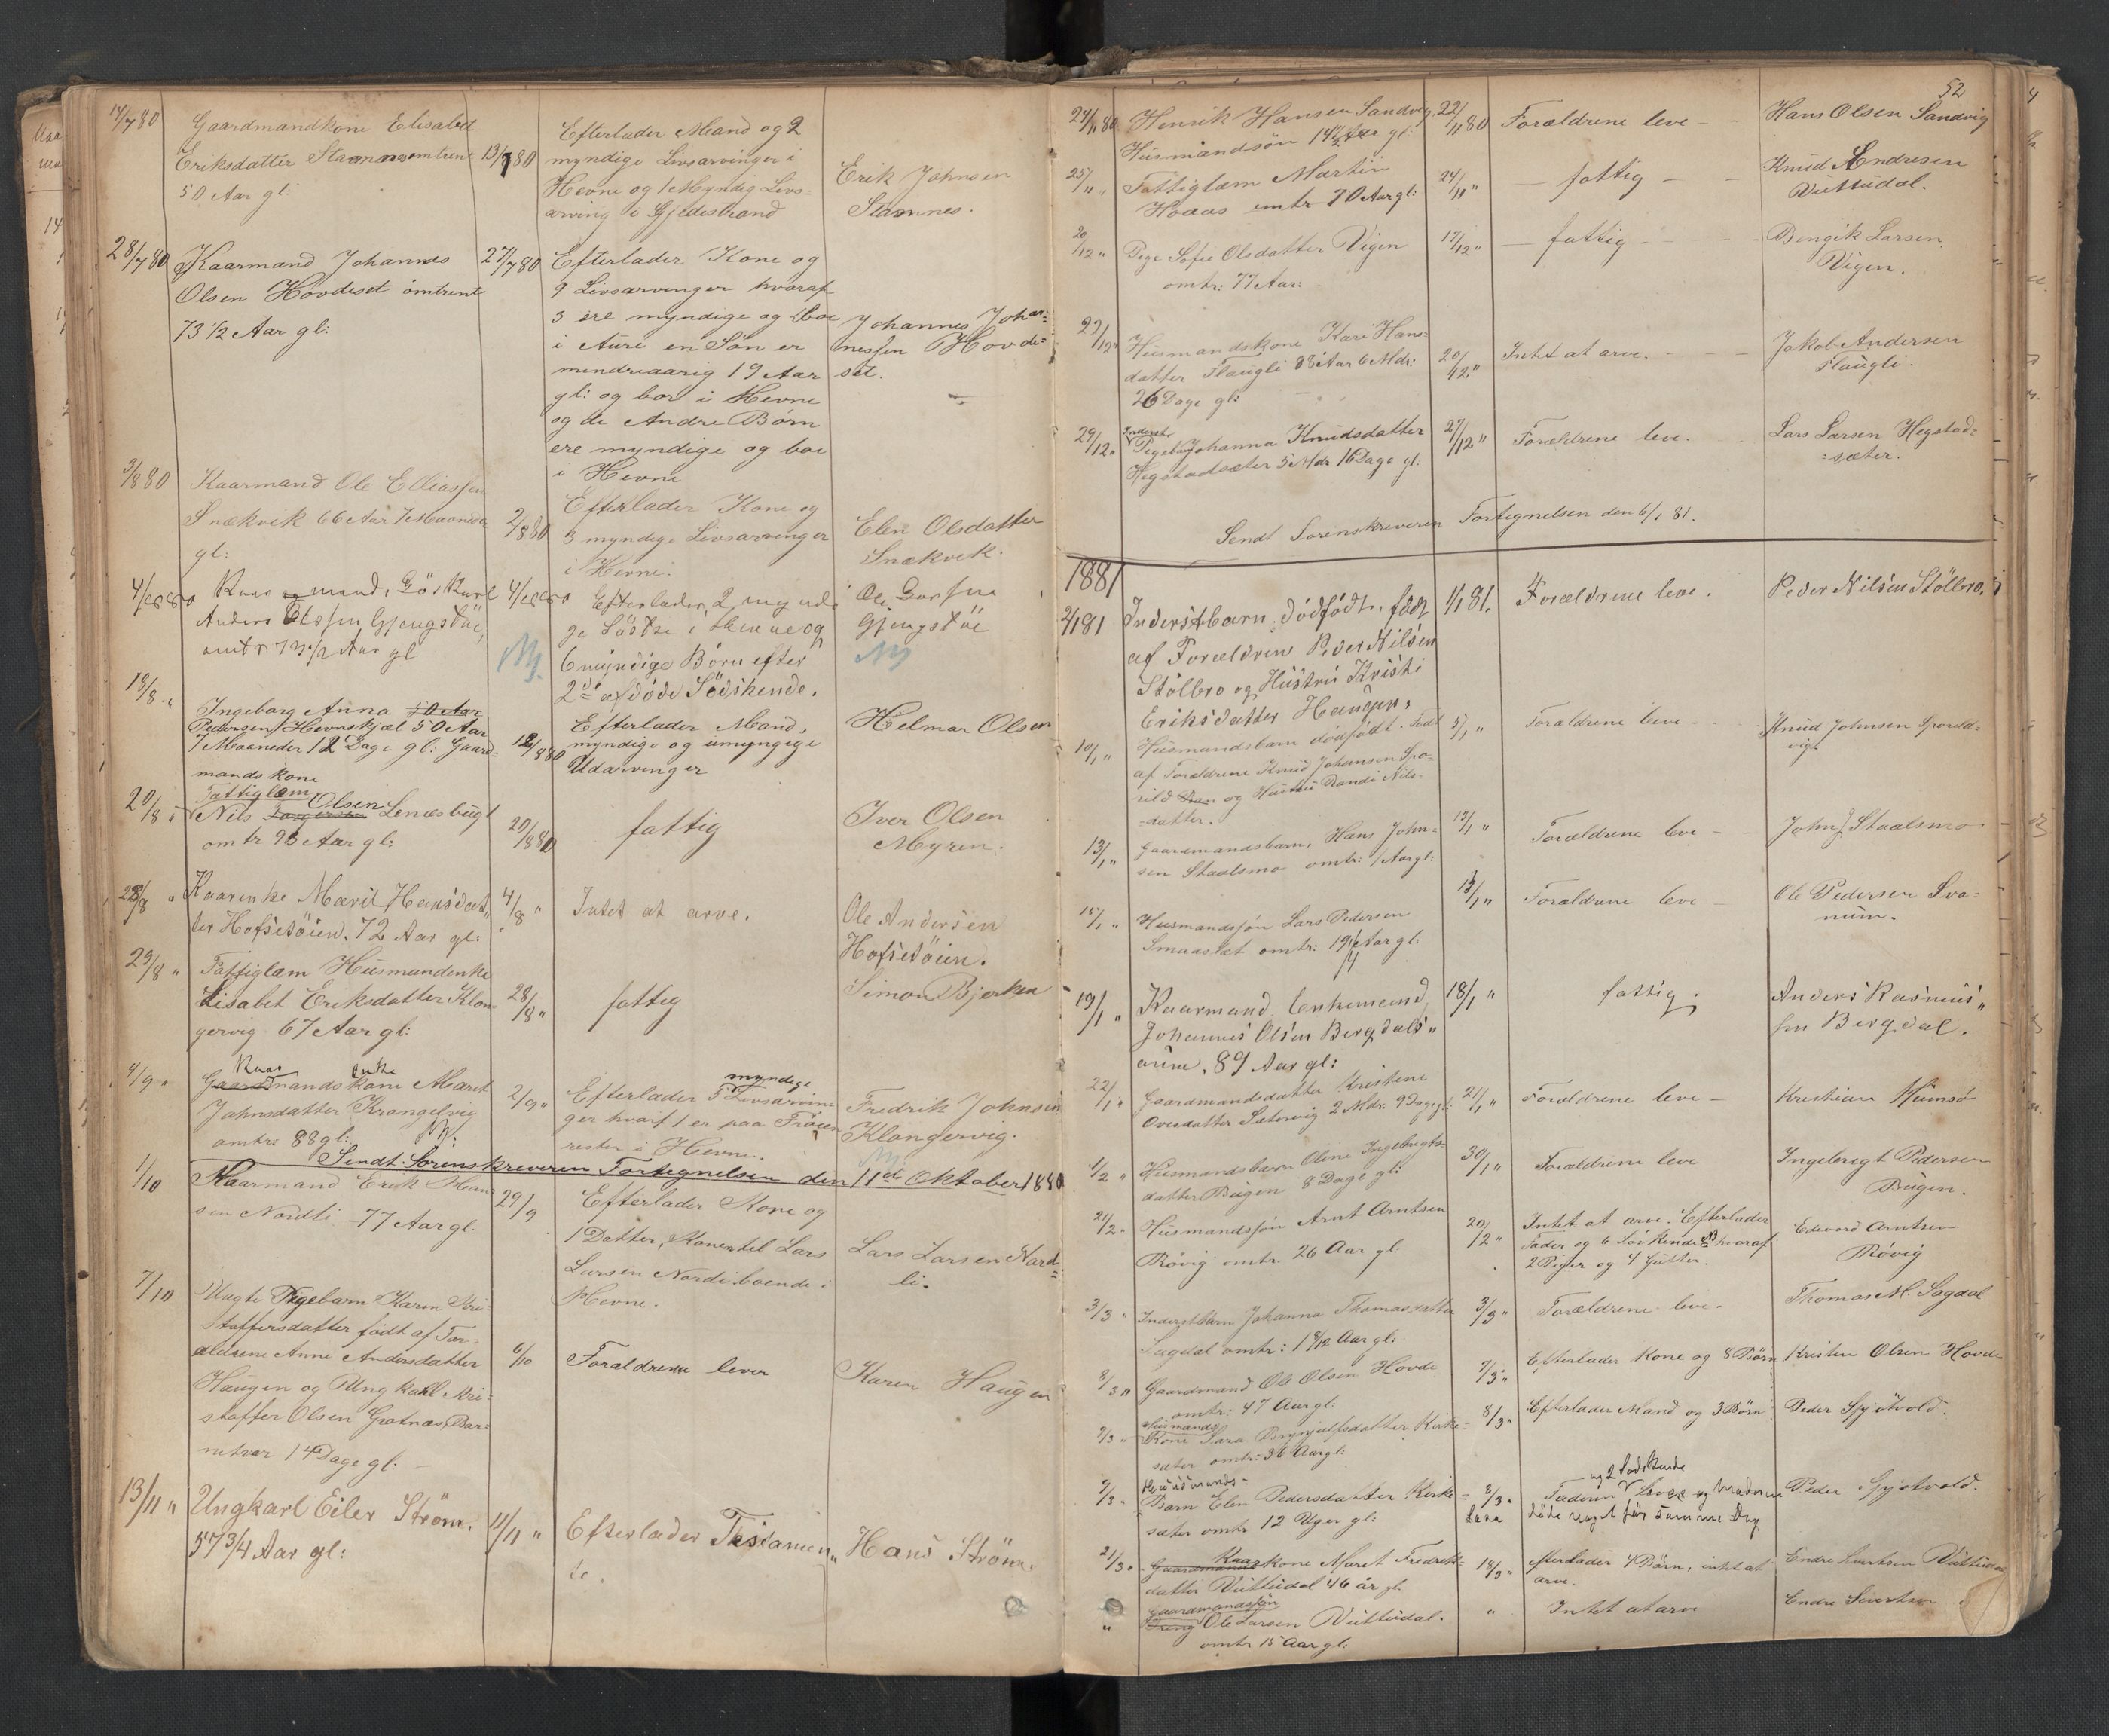 17/7 80 Gaardmandkone Elisabet
Eriksdatter Stamnes omtrent
50 Aar gl:
13/7 80
Efterlader Mand og 2
myndige Livsarvinger i
Hevne og 1 Myndig Livs-
arving i Gjedestrand
Erik Johnsen
Stamnes.
28/7 80 Kaarmand Johannes
Olsen Hövdeset omtrent
73 1/2 Aar gl:
27/7 80
Efterlader Kone og
9 Livsarvinger hvoraf
3 ere myndige og boe
i Aure en Sön er
mindreaarig 19 Aar
gl: og bor i Hevne
og de Andre Börn
ere myndige og boe
i Hevne
Johannes Johan-
nessen Hovde-
set.
3/8 80 Kaarmand Ole Elliassen
Snækvik 66 Aar 7 Maaneder
gl:
2/8 80
Efterlader Kone og
3 myndige Livsarvinger
i Hevne.
Elen Olsdatter
Snækvik.
4/8 880 Kaarmand, Löskarl
Anders Olssen Gjengstöe,
omtr 73 1/2 Aar gl
4/8 880
Efterlader, 2 myndi
ge Söstre i Hevne og
6 myndige Börn efter
2de afdöde Södskende.
Ole Larsen
Gjengstöe
18/8 " Ingeborg Anna 50 Aar
Pedersen Hevnskjæl 50 Aar
7 Maaneder 12 Dage gl: Gaard-
mandskone
12/8 80
Efterlader Mand,
myndige og umyngige
Udarvinger
Helmar Olsen
20/8 " Fattiglem
Nils Olsen Lenæsbugt
omtr 93 Aar gl:
20/8 80
fattig
Iver Olsen
Myren.
28/8 " Kaarenke Marit Hansdat"
ter Hofsetöien. 72 Aar gl:
4/8 "
Intet at arve.
Ole Andersen
Hofsetöien.
29/8 " Fattiglem Husmandenke
Lisabet Eriksdatter Klon
gervig 67 Aar gl:
28/8 "
fattig
Simon Bjerken
4/9 " Kaar enke
Gaardmandskone Maret
Johnsdatter Krangelvig
omtre 88 gl:
2/9 "
myndige
Efterlader 5 Livsarvin-
ger hvaraf 1 er paa Fröien
resten i Hevne.
Fredrik Johnsen
Klongervig.
Sendt Sorenskriveren Fortegnelsen den 11de Oktober 1880
1/10 Kaarmand Erik Han
sen Nordli 77 Aar gl.
29/9
Efterlader Kone og
1 Datter, Konen til Lars
Larsen Nordli boende i
Hevne.
Lars Larsen Nord-
li.
7/10 Uægte Pigebarn Karen Kri-
stoffersdatter födt af For-
ældrene Anne Andersdatter
Haugen og Ungkarl Kri-
stoffer Olsen Grotnæs, Bar-
net var 14 Dage gl:
6/10
Foraldrene lever
Karen Haugen
13/11 " Ungkarl Eiler Ström.
57 3/4 Aar gl:
11/11 "
Efterlader Testamen"
te.
Hans Ström.
52
24/11 80 Henrik Hansen Sandvig
Husmandsön 14 1/2 Aar gl:
22/11 80
Forældrene leve
Hans Olsen Sandvig
25/11 " Fattiglem Martin
Hoaas omtr 70 Aar gl:
24/11 "
fattig
Knud Andresen
Vuttudal.
20/12 " Pige Sofie Olsdatter Vigen
omtr: 77 Aar:
17/12 "
fattig
Bengik Larsen
Vigen.
22/12 " Husmandskone Kari Hans-
datter Flaugli 83 Aar 6 Mdr:
26 Dage gl:
20/12 "
Intet at arve.
Jakob Andersen
Flaugli.
29/12 " Inderst
Pigebarn Johanna Knudsdatter
Hegstadsæter 5 Mdr 16 Dage gl.
27/12 "
Forældrene leve.
Lars Larsen Hegstad-
sæter.
Sendt Sorenskriveren Fortegnelsen den 6/1 81.
1881
2/1 81 Inderstbarn, dödfödt, födt
af Forældrene Peder Nilsen
Stölbro og Hustru Kristi
Eriksdatter Haugen,
1/1 81.
Forældrene leve.
Peder Nilsen Stölbro.
10/1 " Husmandsbarn dödfödt. Födt
af Forældrene Knud Johansen Spo-
rild og Hustru Randi Nils-
datter.
5/1 "
Foraldrene leve
Knud Johnsen Spordd-
vig.
13/1 " Gaardmandsbarn, Hans John-
sen Staalsmo omtr: 1 Aar gl:
13/1 "
Forældrene leve
John J Staalsmo
15/1 " Husmandssön Lars Pedersen
Smaaslæt omtr: 19 1/4 Aar gl:
13/1 "
Forældrene leve
Ole Pedersen Sva-
num.
19/1 " Kaarmand Enkemand,
Johannes Olsen Bergdals"
aune, 89 Aar gl:
18/1 "
fattig.
Anders Rasmus"
sen Bergdal.
22/1 " Gaardmandsdatter Kristine
Ovesdatter Sætervig 2 Mdr. 9 Dage gl:
21/1 "
Forældrene leve
Kristian Humsö
1/2 " Husmandsbarn Oline Ingebrigts-
datter Bugen 8 Dage gl:
30/1 "
Forældrene leve
Ingebrigt Pedersen
Bugen.
21/2 " Husmandssön Arnt Arntsen
Rövig omtr. 26 Aar gl.
20/2 "
Intet at arve. Efterlader
Fader og 6 Söskende hvoraf
2 Piger og 4 Gutter.
Edvard Arntsen
Rövig
3/3 " Inderstbarn Johanna Thomasdatter
Sagdal omtr: 1 8/12 Aar gl:
3/3 "
Forældrene leve.
Thomas M. Sagdal
8/3 " Gaardmand Ole Olsen Hovde
omtr: 47 Aar gl:
7/3 "
Efterlader Kone og 8 Börn
Kristen Olsen Hovde
9/3 " Husmands
Kone Sara Brynjulfsdatter Kirke-
sæter omtr: 36 Aar gl:
8/3 "
Efterlader Mand og 3 Börn
Peder Spjötvold.
9/3 " Husmands-
Barn Elen Pedersdatter Kirke-
sæter omtr 12 Uger gl:
8/3 "
og 2 Södskende
Faderen Lever og Moderen
döde noget för samme Dag
Peder Spjotvold.
21/3 " Kaar
Gaardmands kone Maret Fredrik-
datter Vuttudal 46 år gl.
18/3 "
Efterlader 4 Börn, intet at
arve.
Endre Sivertsen Vuttudal
" Gaardmandssön
Dreng Ole Larsen Vuttudal.
omtr 15 Aar gl:
"
Intet at arve
Endre Sivertsen